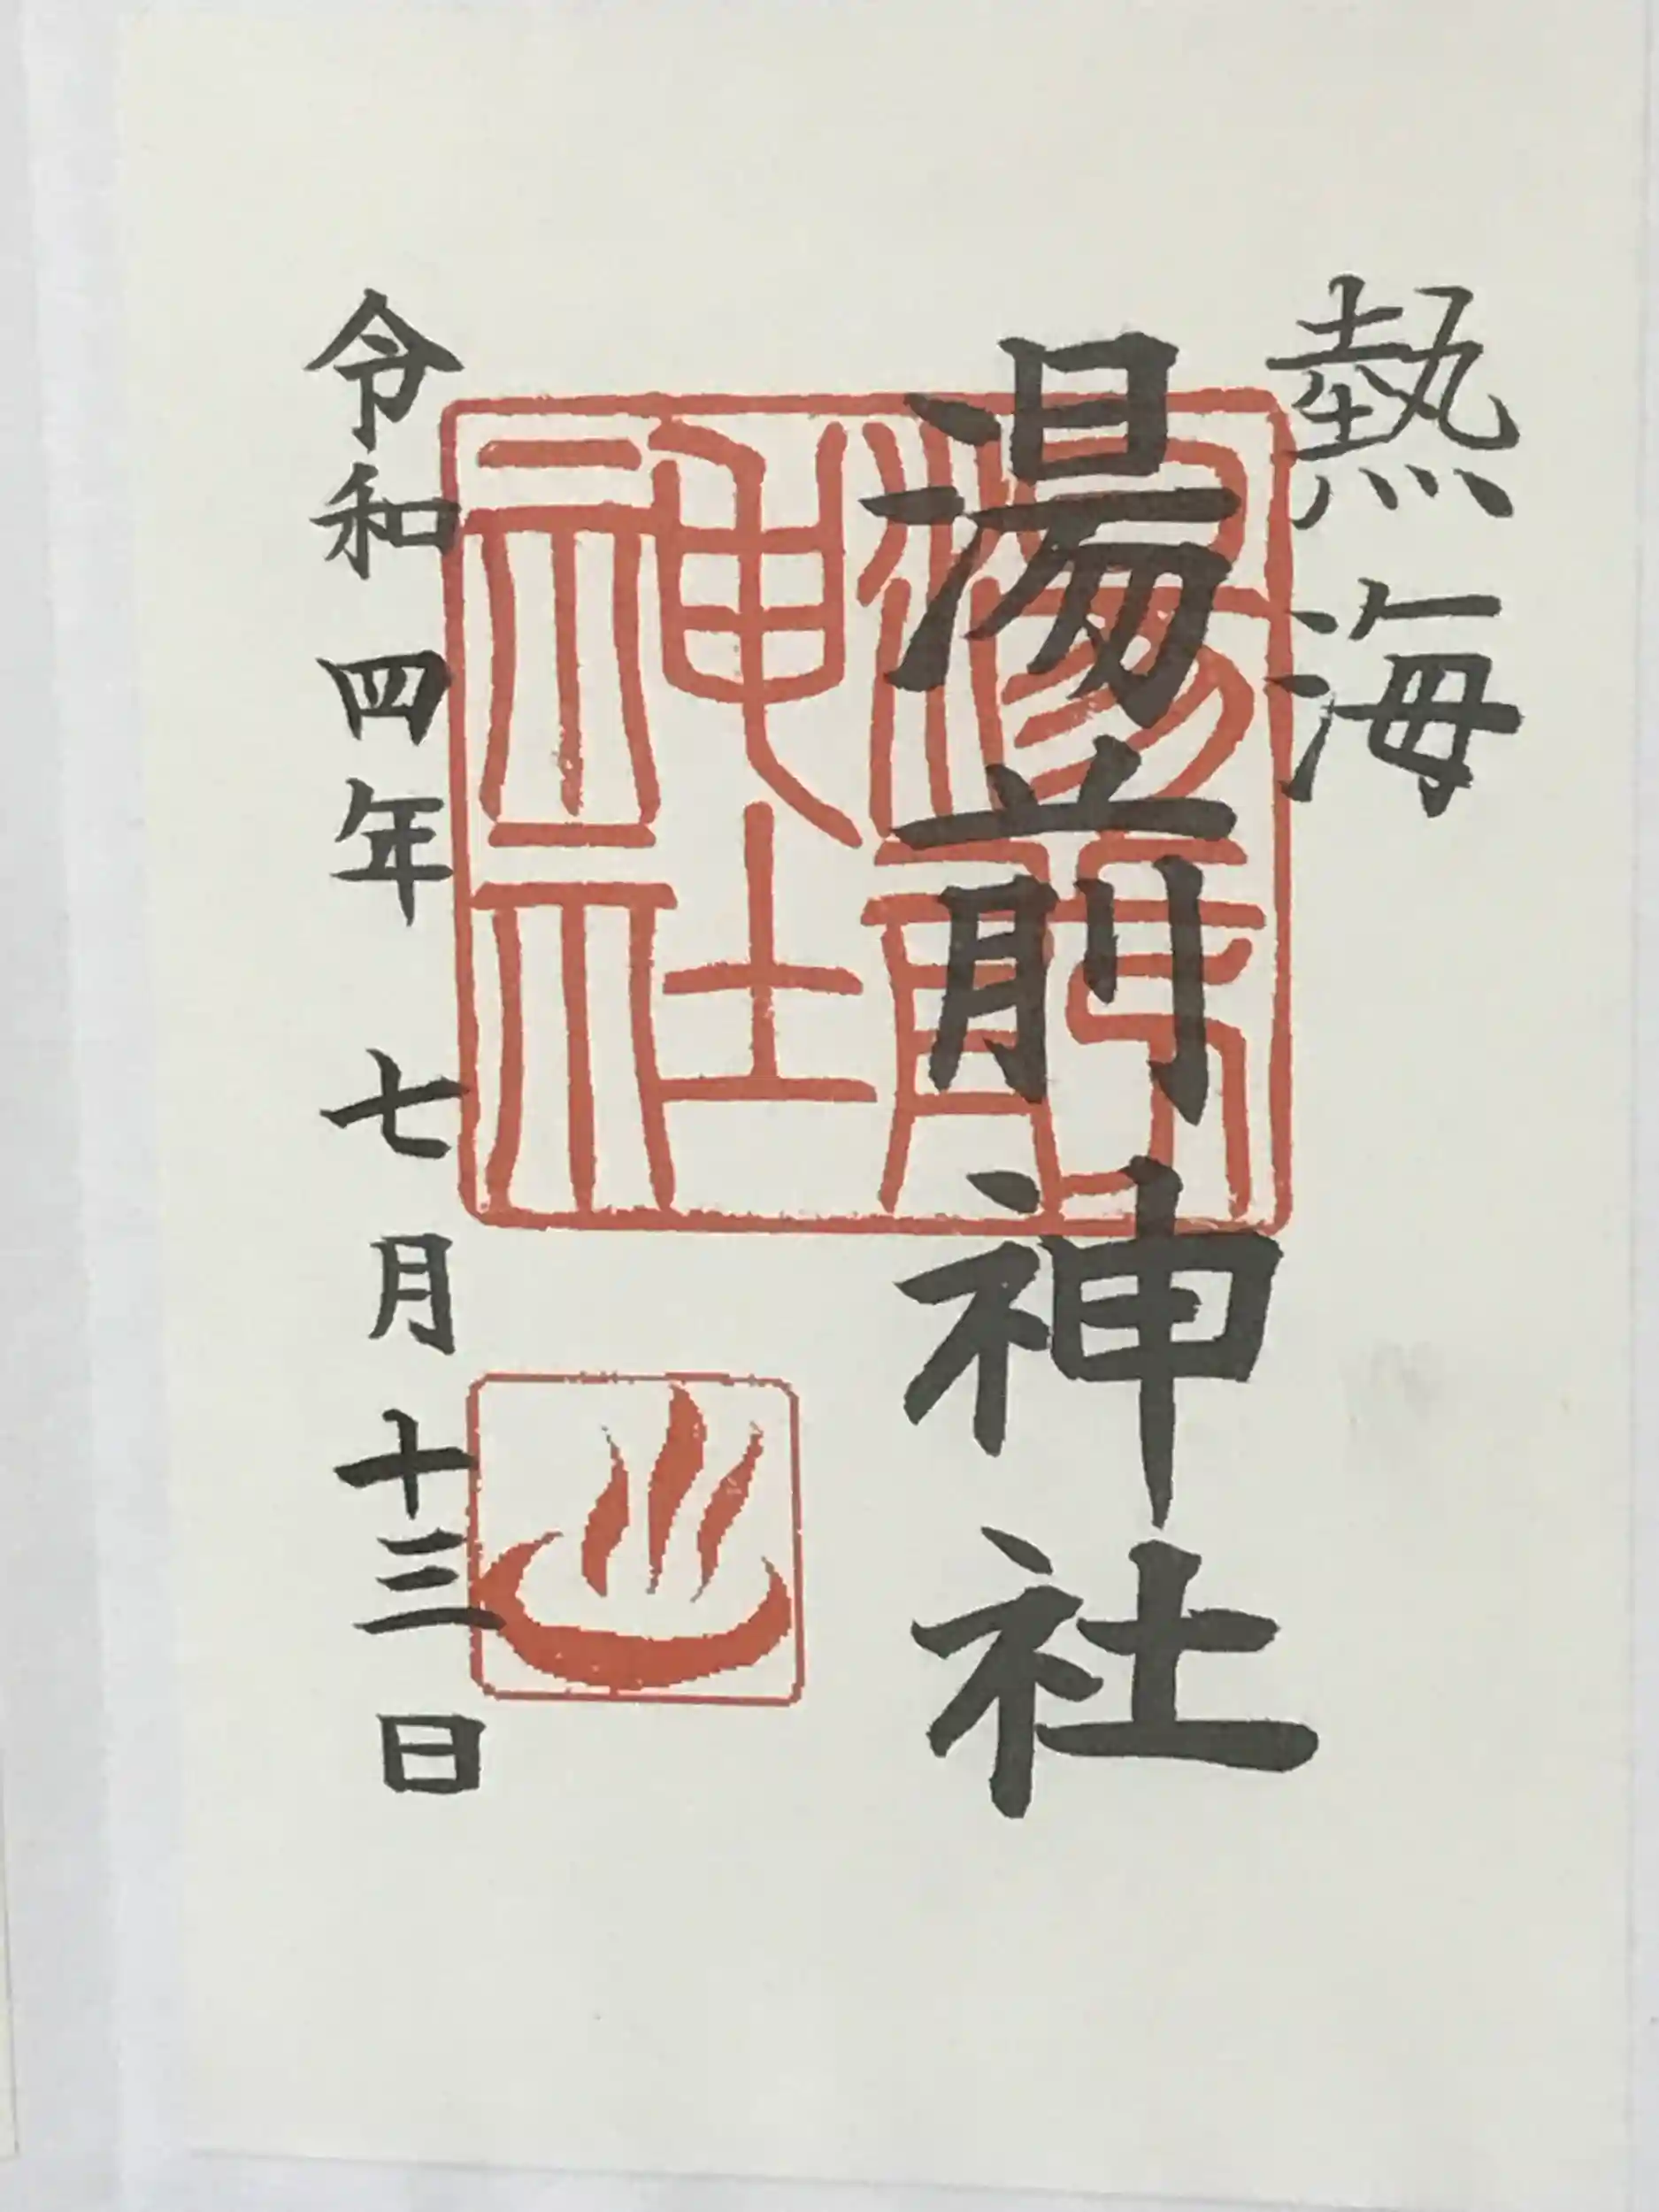 熱海
湯前神社
湯前
神社
令和四年 七月十三日